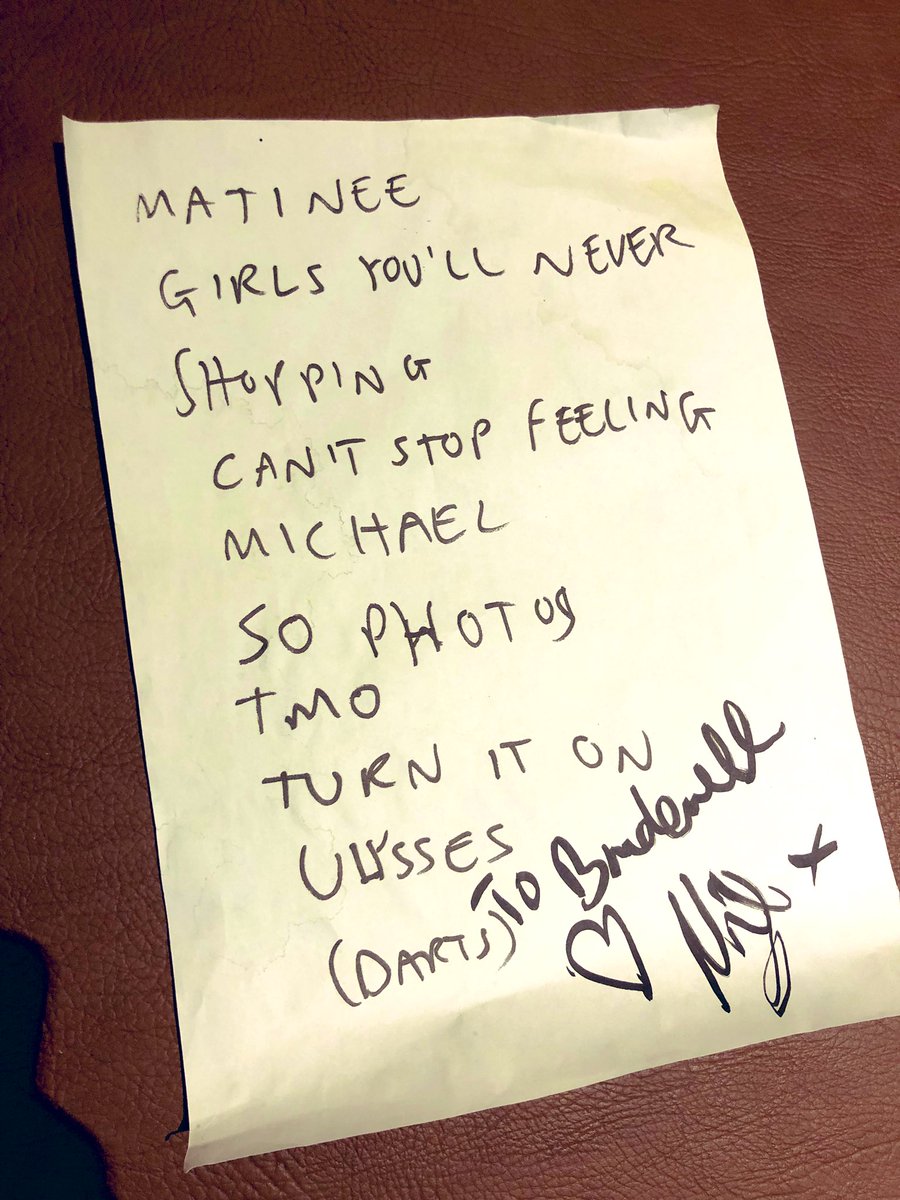 MATINEE
GIRLS YOU'LL NEVER
SHOPPING
CAN'T STOP FEELING
MICHAEL
SO PHOTOS
TMO
TURN IT ON
ULYSSES
(DARTS)
TO